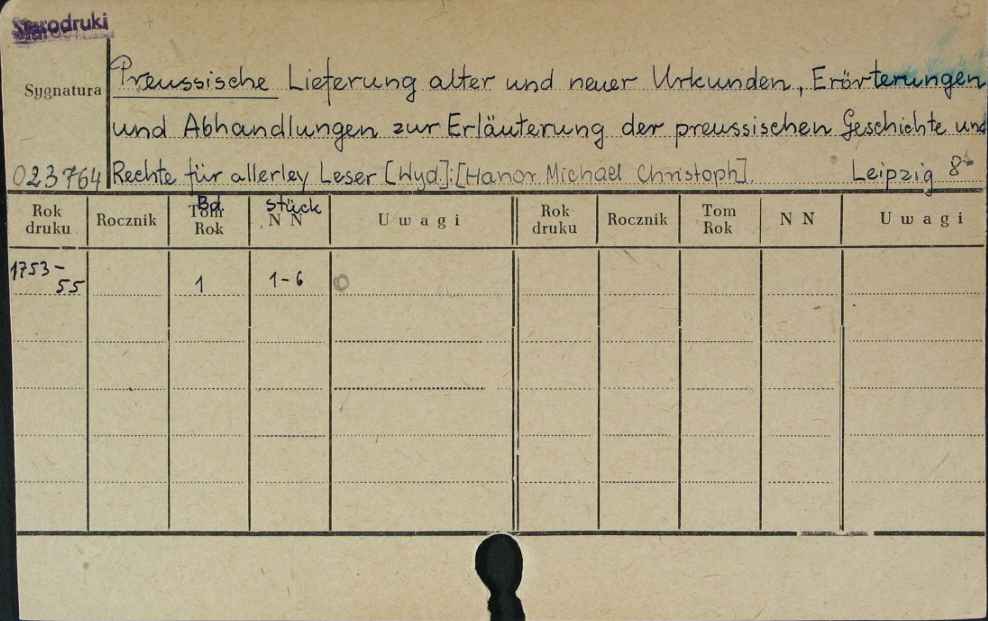 Starodruki
Sygnatura
Preussische Lieferung alter und neuer Urkunden, Erörterungen
und Abhandlungen zur Erläuterung der preussischen Geschichte und
023764 Rechte für allerley Leser [Wyd.]:[Hanor Michael Christoph]. Leipzig 8°
Rok druku Rocznik Tom Rok Bd. N N Stück Uwagi Rok druku Rocznik Tom Rok N N Uwagi
1753-55 1 1-6